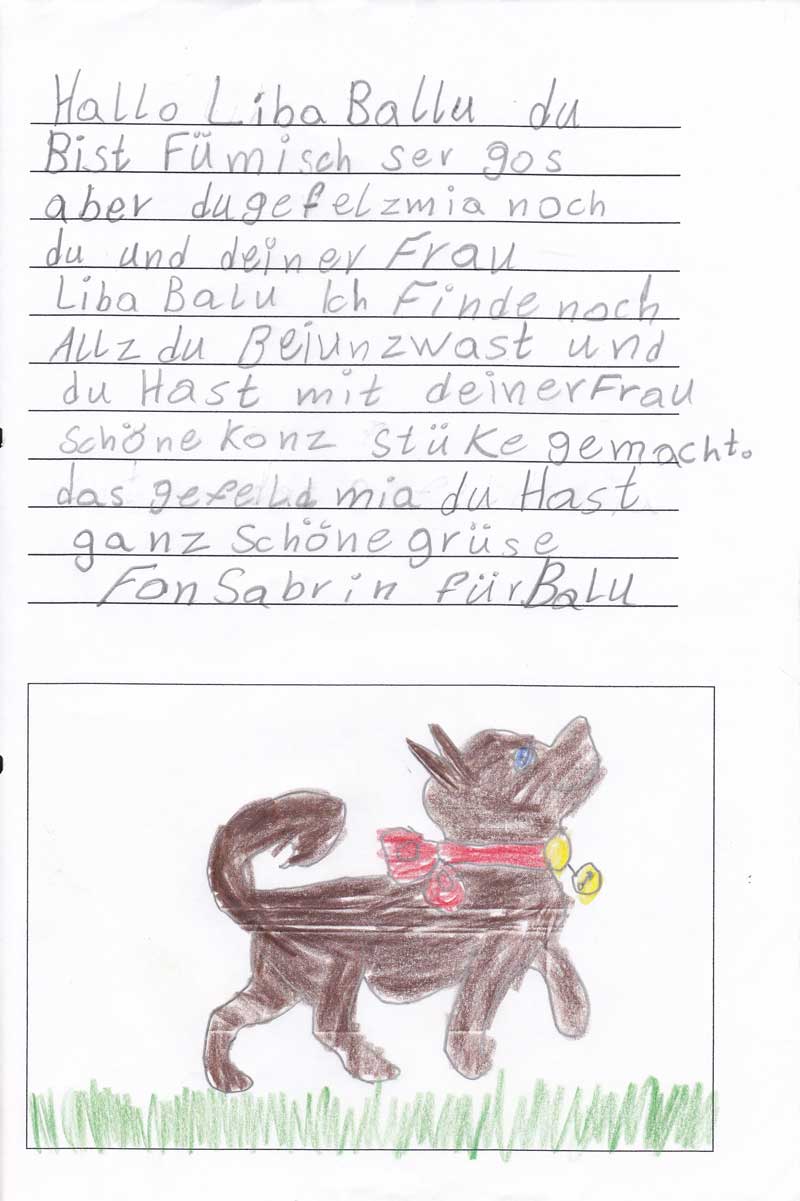 Hallo Liba Ballu du
Bist Fümisch ser gos
aber du gefelz mia noch
du und deiner Frau
Liba Balu Ich Finde noch
Allz du Bei unz wast und
du Hast mit deiner Frau
schöne konz stüke gemacht.
das gefelld mia du Hast
ganz schöne grüse
Fon Sabrin für Balu